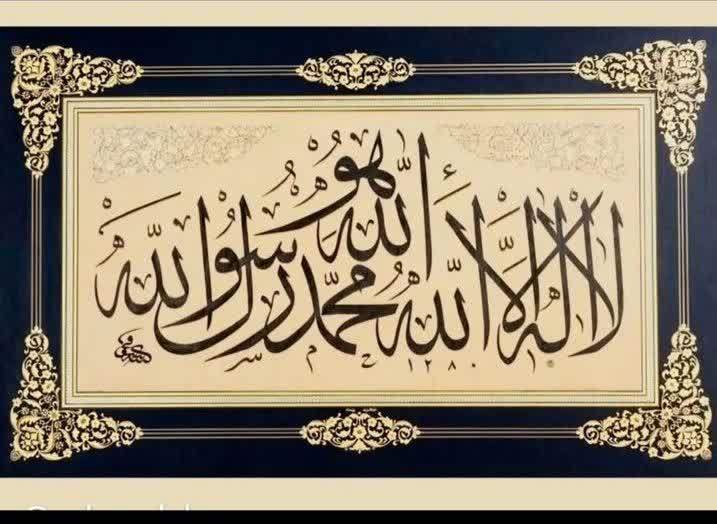 هو الله
لا إله إلا الله محمد رسول الله
١٢٨٠